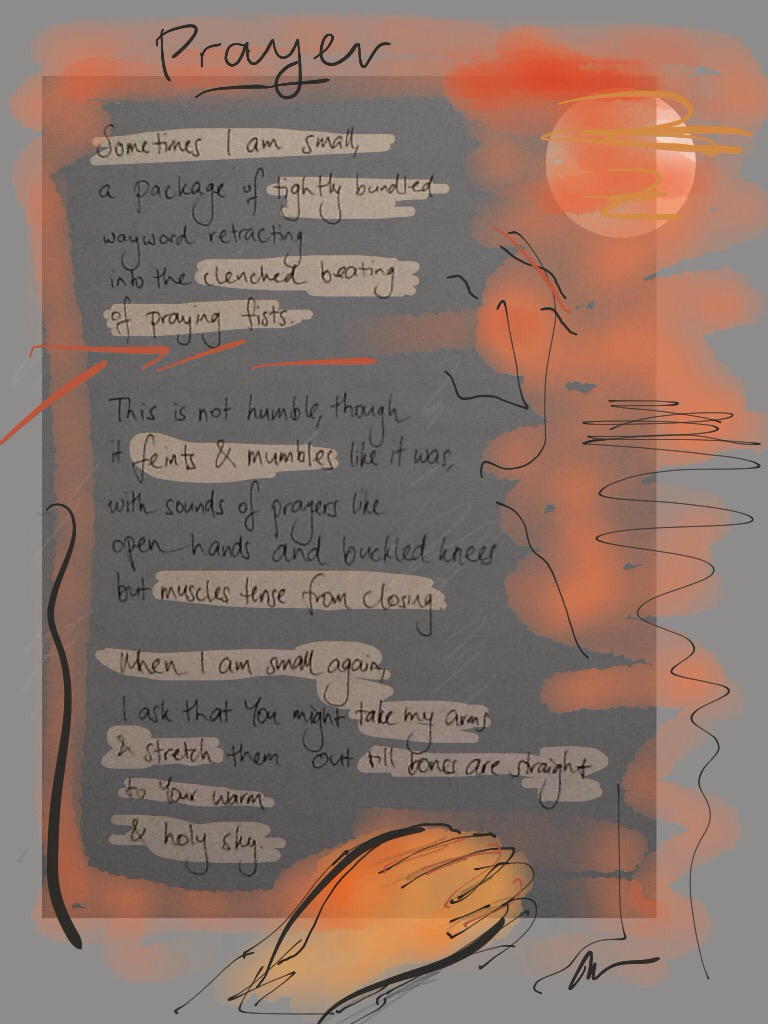 Prayer
Sometimes I am small,
a package of tightly bundled
wayword retracting
into the clenched beating
of praying fists.
This is not humble, though
it feints & mumbles like it was,
with sounds of prayers like
open hands and buckled knees
but muscles tense from closing
When I am small again,
I ask that You might take my arms
& stretch them out till bones are straight
to Your warm
& holy sky.